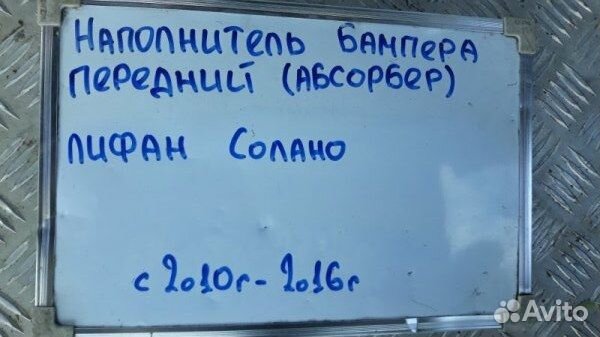 Наполнитель бампера
передний (абсорбер)
Лифан Солано
с 2010г-2016г
Avito